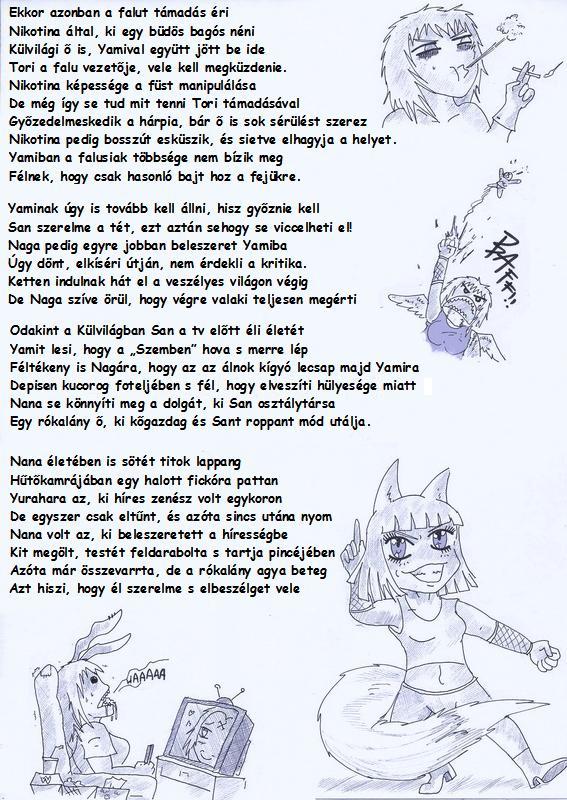 Ekkor azonban a falut támadás éri
Nikotina által, ki egy büdös bagós néni
Külvilági ő is, Yamival együtt jött be ide
Tori a falu vezetője, vele kell megküzdenie.
Nikotina képessége a füst manipulálása
De még így se tud mit tenni Tori támadásával
Győzedelmeskedik a hárpia, bár ő is sok sérülést szerez
Nikotina pedig bosszút esküszik, és sietve elhagyja a helyet.
Yamiban a falusiak többsége nem bízik meg
Félnek, hogy csak hasonló bajt hoz a fejükre.
Yaminak úgy is tovább kell állni, hisz győznie kell
San szerelme a tét, ezt aztán sehogy se viccelheti el!
Naga pedig egyre jobban beleszeret Yamiba
Úgy dönt, elkíséri útján, nem érdekli a kritika.
Ketten indulnak hát el a veszélyes világon végig
De Naga szíve örül, hogy végre valaki teljesen megérti
Odakint a Külvilágban San a tv előtt éli életét
Yamit lesi, hogy a „Szemben” hova s merre lép
Féltékeny is Nagára, hogy az az álnok kígyó lecsap majd Yamira
Depisen kucorog foteljében s fél, hogy elveszíti hülyesége miatt
Nana se könnyíti meg a dolgát, ki San osztálytársa
Egy rókalány ő, ki kőgazdag és Sant roppant mód utálja.
Nana életében is sötét titok lappang
Hűtőkamrájában egy halott fickóra pattan
Yurahara az, ki híres zenész volt egykoron
De egyszer csak eltűnt, és azóta sincs utána nyom
Nana volt az, ki beleszeretett a hírességbe
Kit megölt, testét feldarabolta s tartja pincéjében
Azóta már összevarrta, de a rókalány agya beteg
Azt hiszi, hogy él szerelme s elbeszélget vele
WAAAAA